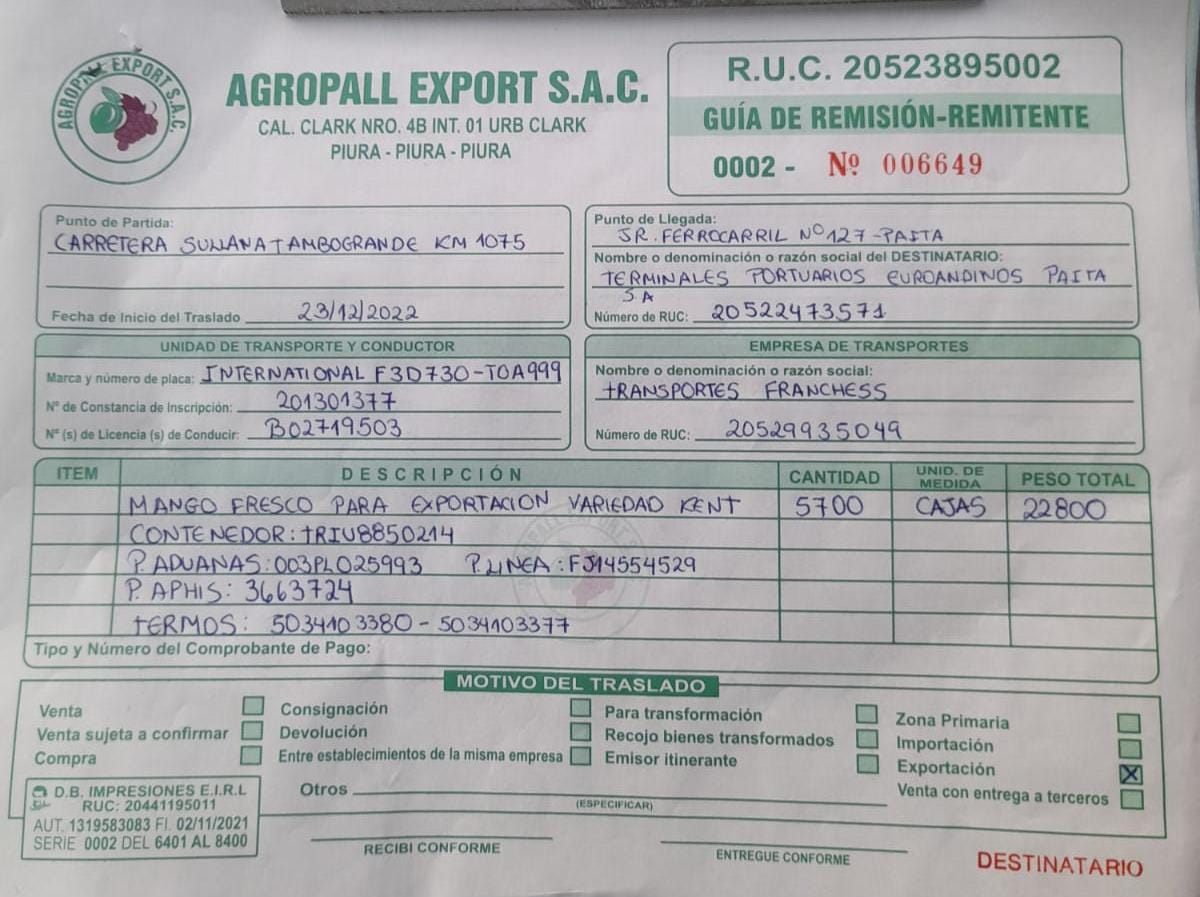 AGROPALL EXPORT S.A.C.
AGROPALL EXPORT S.A.C.
CAL. CLARK NRO. 4B INT. 01 URB CLARK
PIURA - PIURA - PIURA
R.U.C. 20523895002
GUÍA DE REMISIÓN-REMITENTE
0002 - Nº 006649
Punto de Partida:
CARRETERA SULLANA TAMBOGRANDE KM 1075
Fecha de Inicio del Traslado 23/12/2022
Punto de Llegada:
JR. FERROCARRIL Nº 127-PAITA
Nombre o denominación o razón social del DESTINATARIO:
TERMINALES PORTUARIOS EUROANDINOS PAITA
SA
Número de RUC: 20522473571
UNIDAD DE TRANSPORTE Y CONDUCTOR
Marca y número de placa: INTERNATIONAL F3D730-T0A999
Nº de Constancia de Inscripción: 201301377
Nº (s) de Licencia (s) de Conducir: B02719503
EMPRESA DE TRANSPORTES
Nombre o denominación o razón social:
TRANSPORTES FRANCHESS
Número de RUC: 20529935049
ITEM DESCRIPCIÓN CANTIDAD UNID. DE MEDIDA PESO TOTAL
MANGO FRESCO PARA EXPORTACION VARIEDAD KENT 5700 CAJAS 22800
CONTENEDOR: TRIU8850214
P. ADUANAS: 003PL025993 P. LINEA: FJ14554529
P. APHIS: 3663724
TERMOS: 5034103380 - 5034103377
Tipo y Número del Comprobante de Pago:
MOTIVO DEL TRASLADO
Venta
Venta sujeta a confirmar
Compra
Consignación
Devolución
Entre establecimientos de la misma empresa
Para transformación
Recojo bienes transformados
Emisor itinerante
Zona Primaria
Importación
Exportación X
Venta con entrega a terceros
Otros
(ESPECIFICAR)
D.B. IMPRESIONES E.I.R.L
RUC: 20441195011
AUT. 1319583083 FI. 02/11/2021
SERIE 0002 DEL 6401 AL 8400
RECIBI CONFORME
ENTREGUE CONFORME
DESTINATARIO